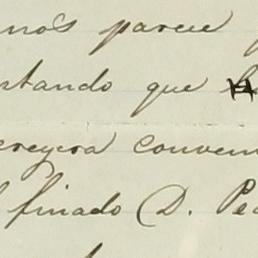 nos parece
ntando que
creyera conven
l finado D. Pe